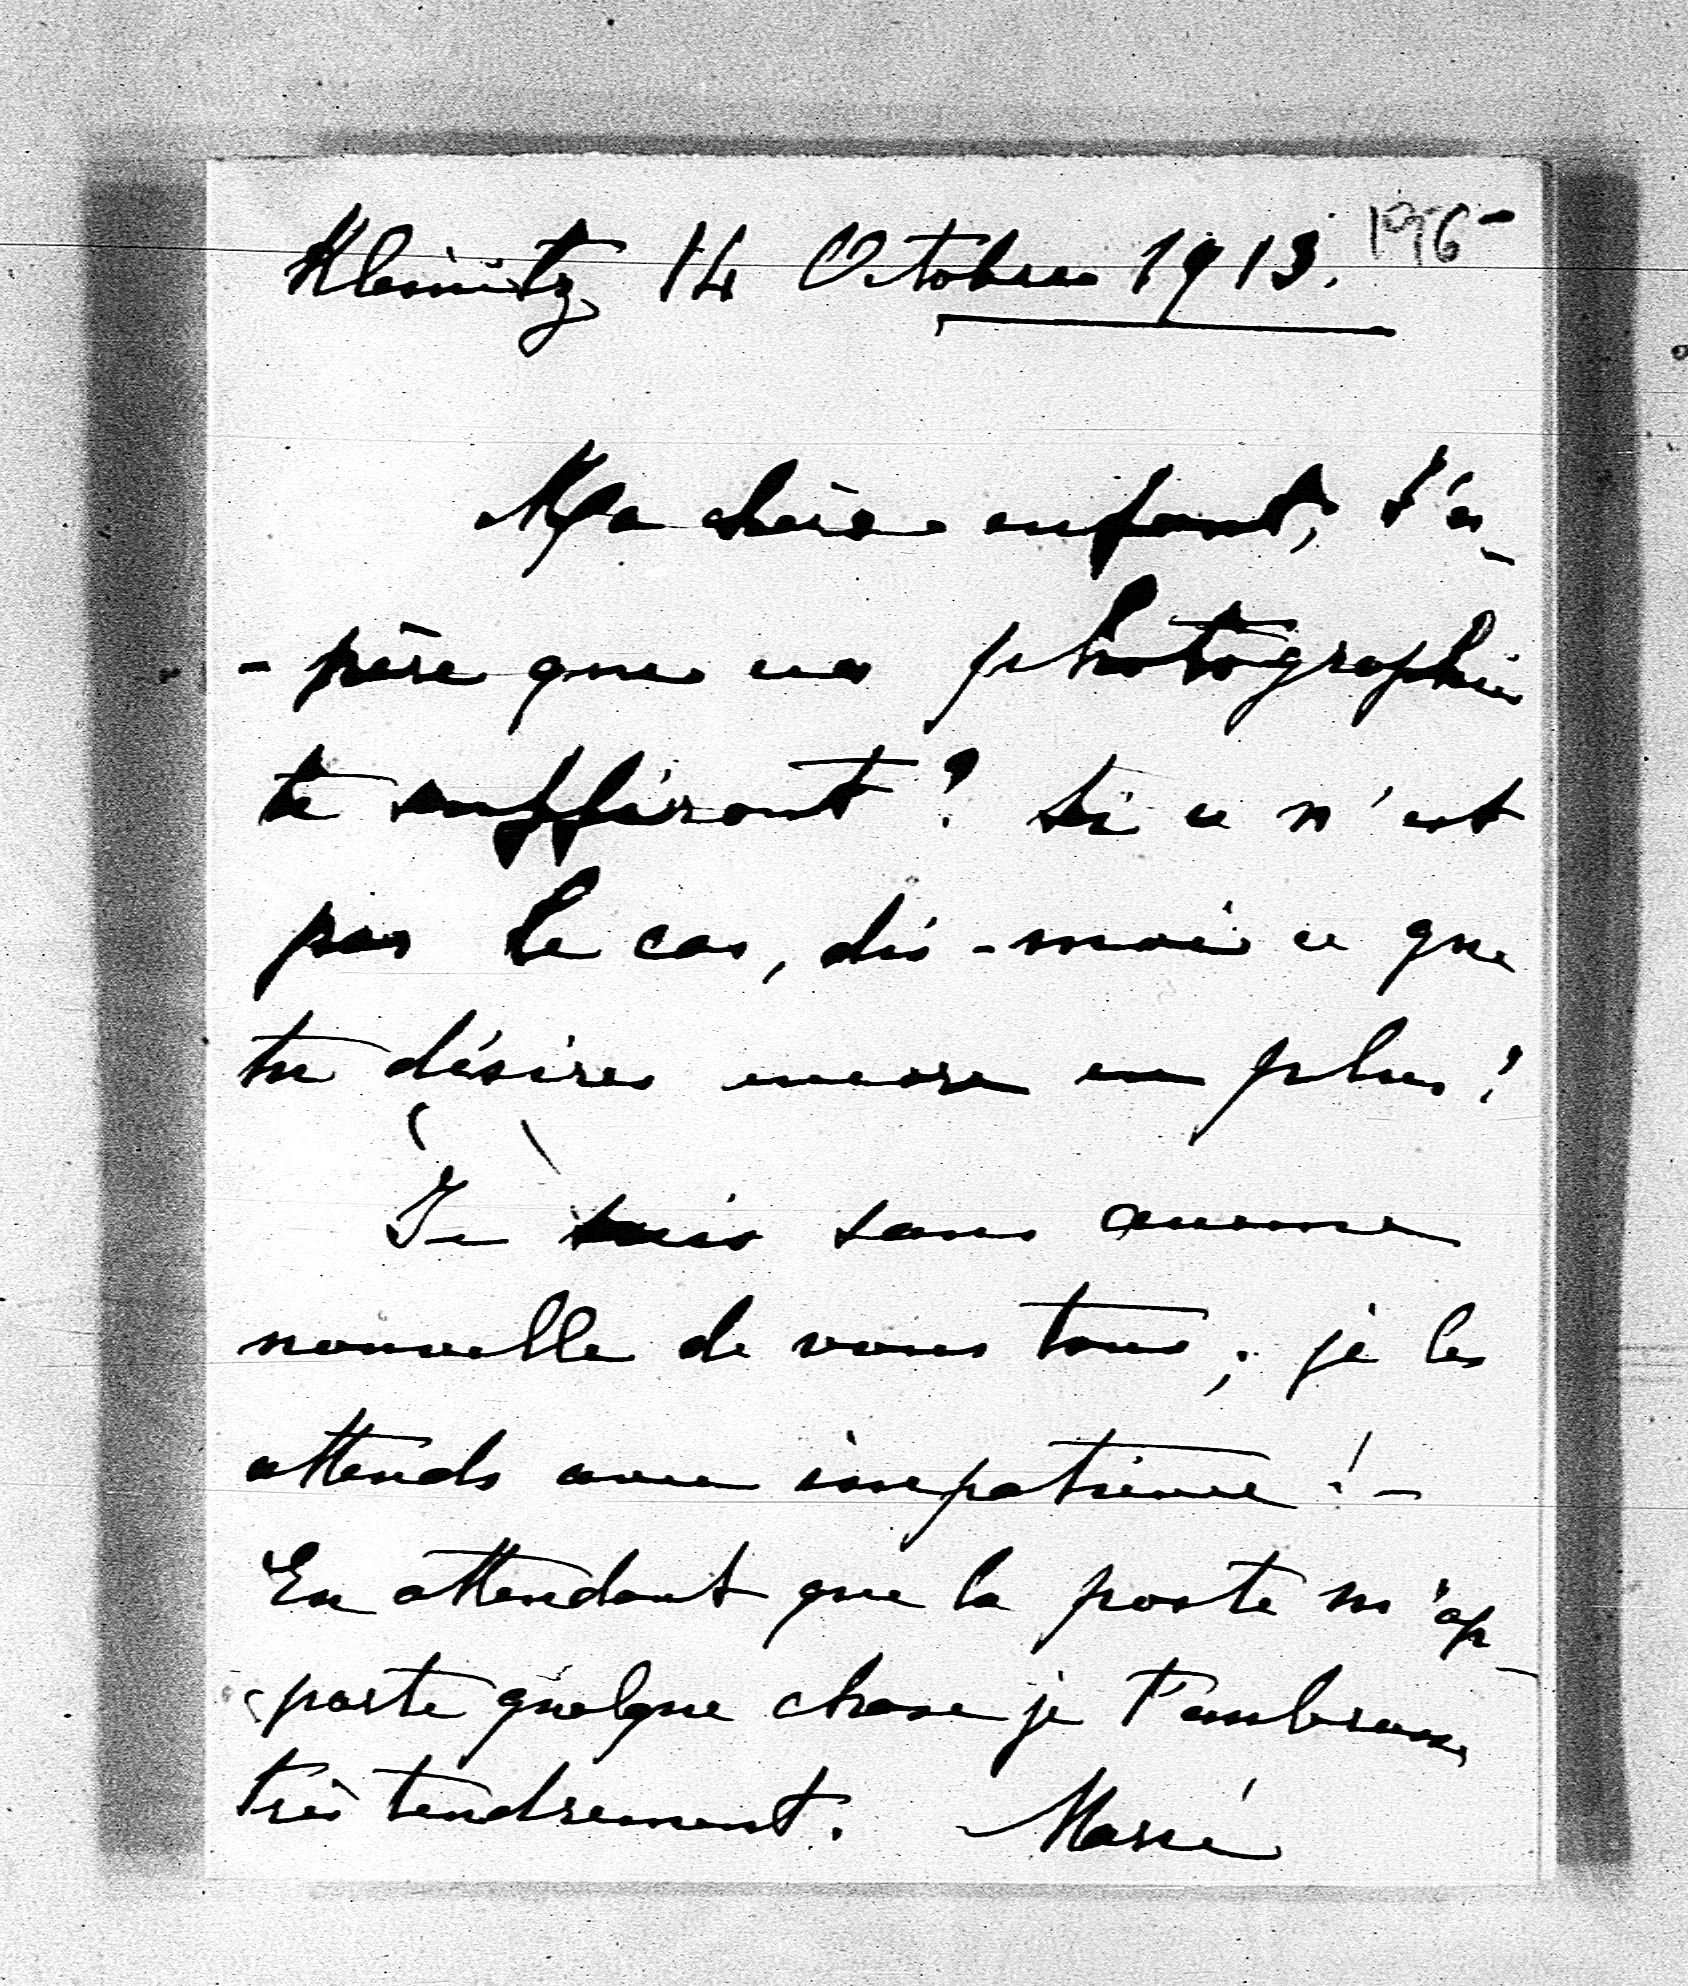 Kleinitz 14 Octobre 1913.
Ma chère enfant, j'es-
-père que ces photographies
te suffiront? Si ce n'est
pas le cas, dis-moi ce que
tu désires encore en plus?
Je suis sans aucune
nouvelle de vous tous; je les
attends avec impatience! -
En attendant que la poste m'ap-
porte quelque chose je t'embrasse
très tendrement. Marie